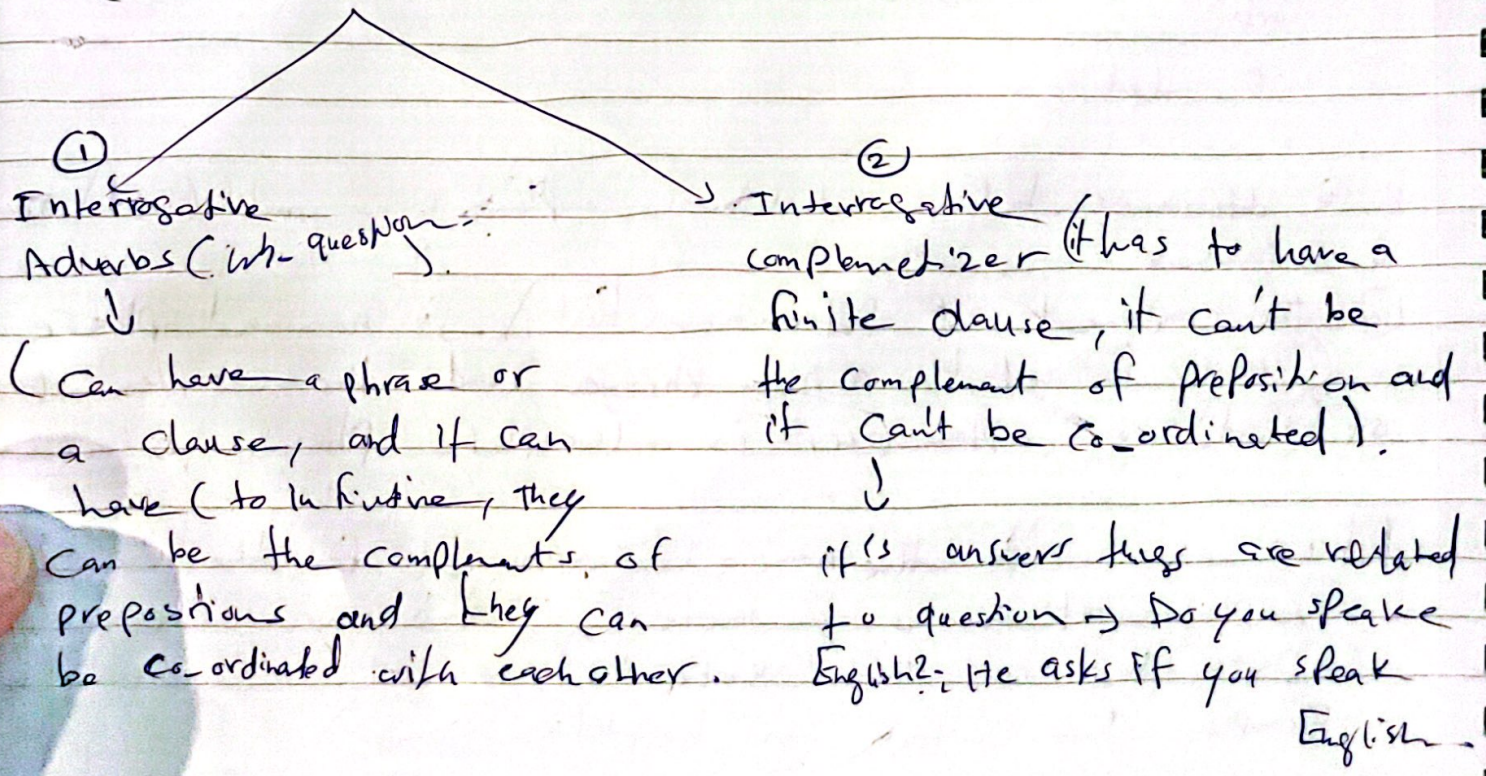 ①
Interrogative
Adverbs (wh- question).
↓
(Can have a phrase or
a clause, and it can
have (to infinitive, they
can be the complements of
prepositions and they can
be co-ordinated with each other.
②
Interrogative
complemetizer (it has to have a
finite clause, it can't be
the complement of preposition and
it can't be co-ordinated).
↓
it's answers things are related
to question → Do you speake
English?; He asks if you speak
English.